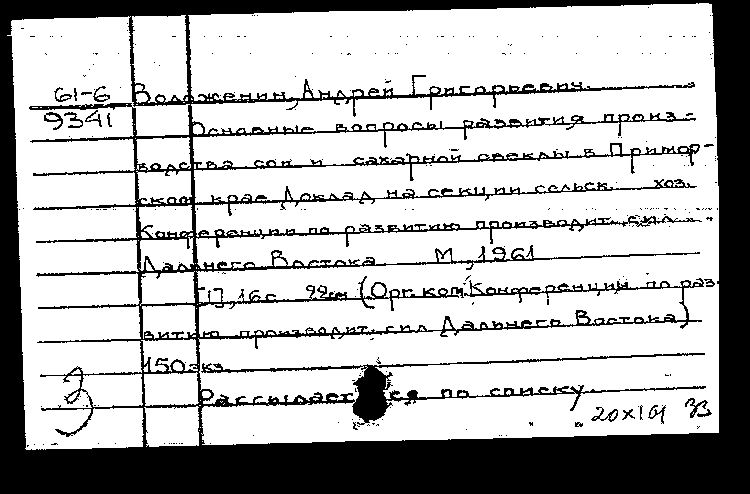 61-6 Воложенин, Андрей Григорьевич.
9341 Основные вопросы развития произ-
водства сои и сахарной свеклы в Примор-
ском крае Доклад на секции сельск. хоз.
Конференции по развитию производит. сил
Дальнего Востока М., 1961
[1], 16 с 22см (Орг. ком. Конференции по раз-
витию производит. сил Дальнего Востока)
150 экз.
З Рассылается по списку.
20 X 61